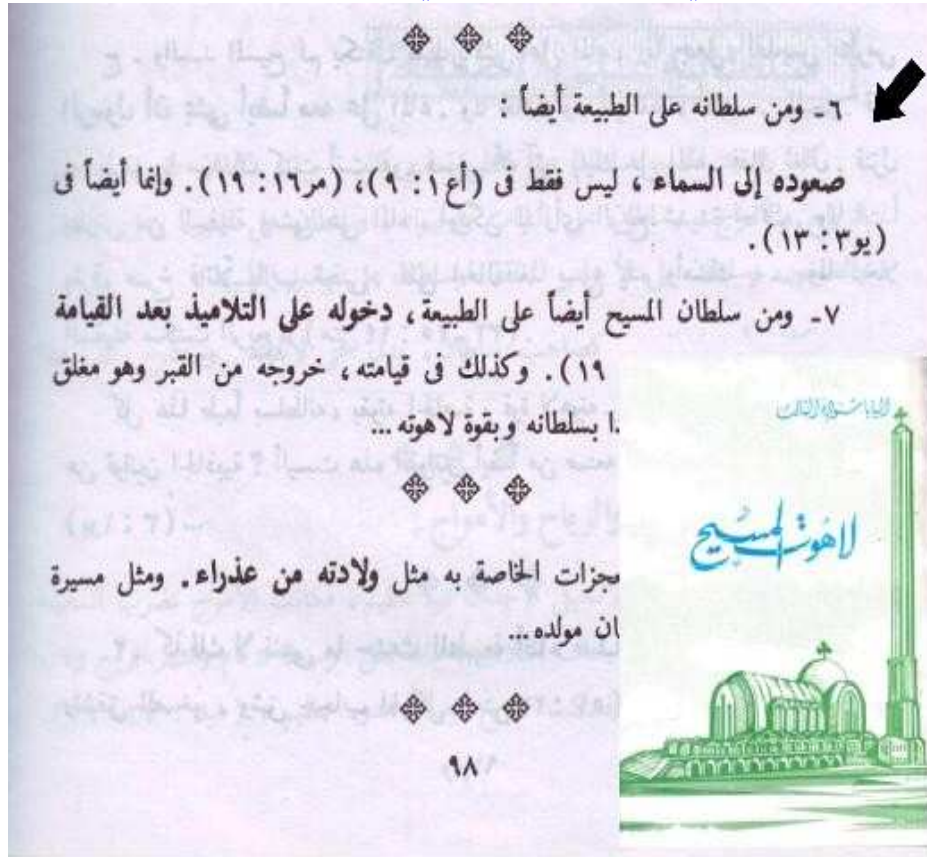 ٦ـ ومن سلطانه على الطبيعة أيضاً :
صعوده إلى السماء ، ليس فقط فى (أع١: ٩)، (مر١٦: ١٩). وإنما أيضاً فى
(يو٣: ١٣).
٧ـ ومن سلطان المسيح أيضاً على الطبيعة، دخوله على التلاميذ بعد القيامة
١٩). وكذلك فى قيامته، خروجه من القبر وهو مغلق
بسلطانه وبقوة لاهوته...
الخاصة به مثل ولادته من عذراء. ومثل مسيرة
مولده...
٩٨
البابا شنوده الثالث
لاهوت المسيح